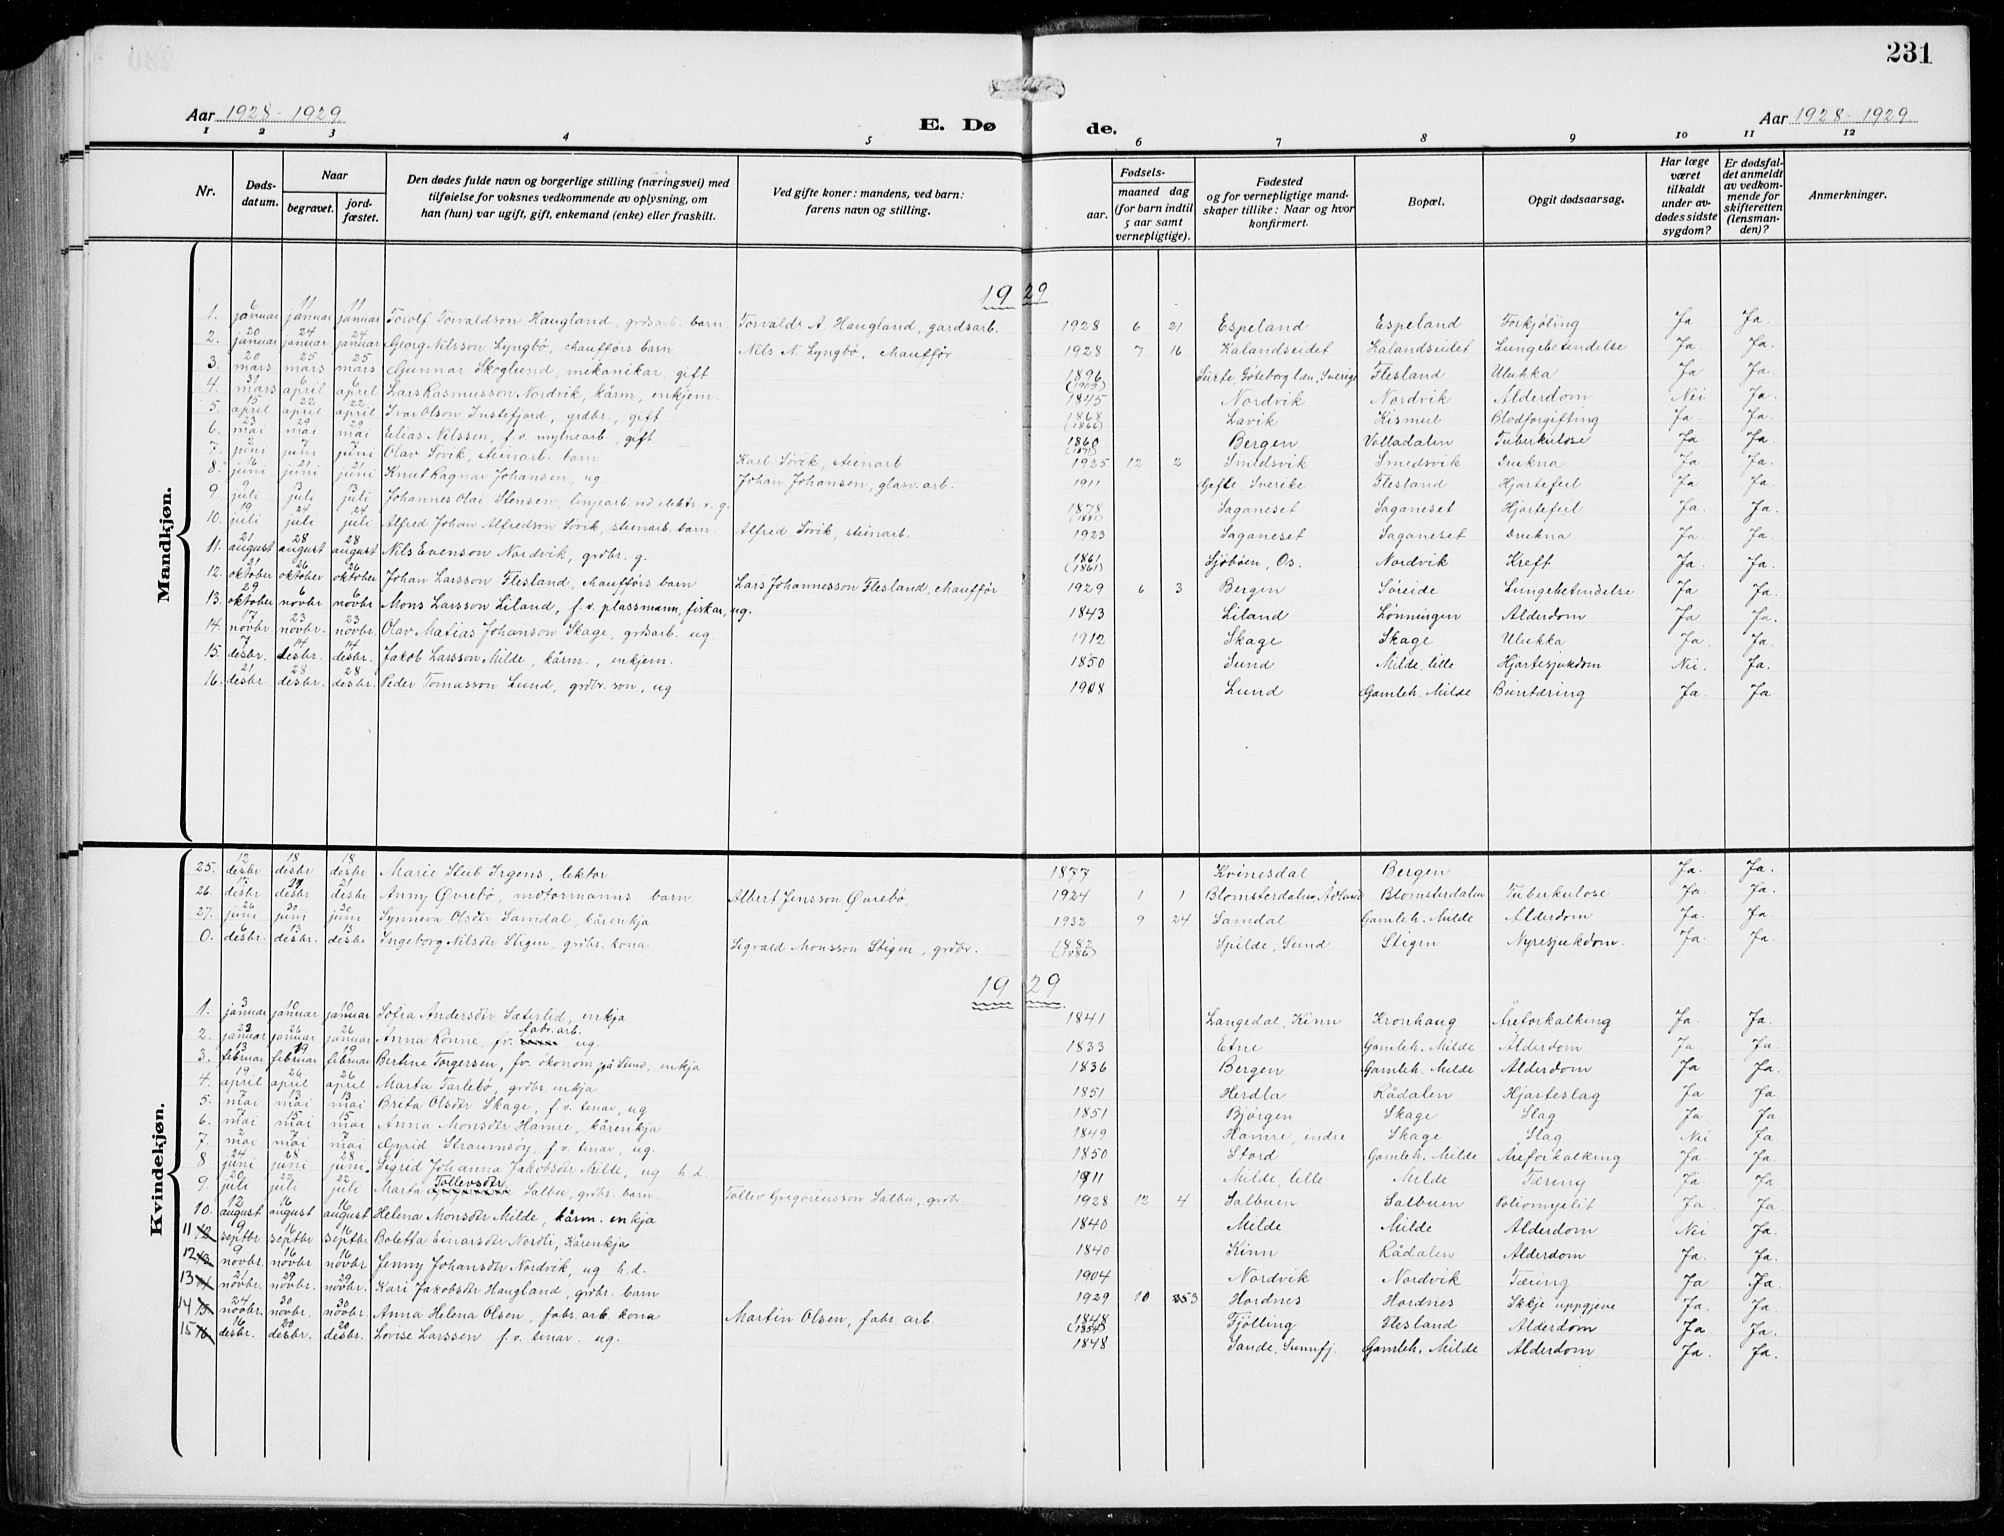 231
Aar 1928-1929
E. Dø de.
Aar 1928-1929
1 2 3 4 5 6 7 8 9 10 11 12
Nr.
Døds-datum.
Naar
begravet.
jord-fæstet.
Den dødes fulde navn og borgerlige stilling (næringsvei) med
tilføielse for voksnes vedkommende av oplysning, om
han (hun) var ugift, gift, enkemand (enke) eller fraskilt.
Ved gifte koner: mandens, ved barn:
farens navn og stilling.
Fødsels-
aar.
maaned dag
(for barn indtil
5 aar samt
vernepligtige).
Fødested
og for vernepligtige mand-
skaper tillike: Naar og hvor
konfirmert.
Bopæl.
Opgit dødsaarsag.
Har læge
været
tilkaldt
under av-
dødes sidste
sygdom?
Er dødsfal-
det anmeldt
av vedkom-
mende for
skifteretten
(lensman-
den)?
Anmerkninger.
Mandkjøn.
1929
1. 6 januar 11 januar 11 januar Torolf Torvaldson Haugland, grdsarb. barn Torvald A. Haugland, gardsarb. 1928 6 21 Espeland Espeland Forkjøling Ja Ja.
2. 20 januar 24 januar 24 januar Georg Nilsson Lyngbø, chaufførs barn Nils N. Lyngbø, chauffør 1928 7 16 Kalandseidet Kalandseidet Lungebetendelse Ja. Ja.
3. 20 mars 25 mars 25 mars Gunnar Skoglund, mekanikar, gift 1896 Surte, Göteborg län, Sverige Flesland Ulukka Ja Ja.
4. 31 mars 6 april 6 april Lars Rasmusson Nordvik, kårm, enkjem. 1845 Nordvik Nordvik Alderdom Nei Ja.
5. 15 april 22 april 22 april Ivar Olson Instefjord, grdbr., gift 1868 (1866) Lavik Kismul Blodforgifting Ja. Ja.
6. 23 mai 29 mai 29 mai Elias Nilssen, f.v. mylnearb., gift 1860 (1871) Bergen Volladalen Tuberkulose Ja Ja.
7. 2 juni 7 juni 7 juni Olav Søvik, steinarb. barn Karl Søvik, steinarb 1925 12 2 Smedsvik Smedsvik Drukna Ja Ja.
8. 16 juni 21 juni 21 juni Knut Ragnar Johansen, ug. Johan Johansen, glasv. arb. 1911 Gefle, Sverike Flesland Hjartefeil Ja Ja.
9. 9 juli 13 juli 13 juli Johannes Olai Stensen, linjearb. ved elektr. v. g. 1878 (1881) Saganeset Saganeset Hjartefeil Ja. Ja.
10. 19 juli 24 juli 24 juli Alfred Johan Alfredson Søvik, steinarb. barn Alfred Søvik, steinarb. 1923 Saganeset Saganeset Drukna Ja. Ja.
11. 21 august 28 august 28 august Nils Evenson Nordvik, grdbr. g. 1861 (1861) Sjøbøen, Os. Nordvik Kreft Ja. Ja.
12. 21 oktober 26 oktober 26 oktober Johan Larsson Flesland, chaufførs barn Lars Johannesson Flesland, chauffør 1929 6 3 Bergen Søreide Lungebetendelse Ja Ja.
13. 29 oktober 6 novbr 6 novbr Mons Larsson Liland, f.v. plassmann, fiskar, ug. 1843 Liland Lønningen Alderdom Ja Ja.
14. 17 novbr 23 novbr. 23 novbr. Olav Matias Johanson Skage, grdsarb. ug. 1912 Skage Skage Ulukka Ja. Ja.
15. 7 desbr. 14 desbr. 14 desbr. Jakob Larsson Milde, kårm., enkjem. 1850 Sund Milde, lille Hjartesjukdom Nei. Ja.
16. 21 desbr 28 desbr. 28 desbr. Peder Tomasson Lund, grdbr. son, ug 1908 Lund Gamleh. Milde Bentæring Ja. Ja
Kvindekjøn.
25. 12 desbr 18 desbr 18 desbr Marie Stub Irgens, lektor 1877 Kvinesdal Bergen Ja. Ja.
26. desbr desbr 21 desbr Anny Øvrebø, motormanns barn Albert Jensson Øvrebø 1924 1 1 Blomsterdalen, Ådland Blomsterdalen Tuberkulose Ja. Ja.
27. 26 juni 30 juni 30 juni Synneva Olsdtr Samdal, kårenkja 1932 9 24 Samdal Gamleh. Milde Alderdom Ja. Ja.
0. 6 desbr. 13 desbr. 13 desbr Ingeborg Nilsdtr Stigen, grdbr. kona Sigvald Monsson Stigen, grdbr. 1882 (1886) Spilde, Sund Stigen Nyresjukdom. Ja. Ja.
1929
1. 3 januar 10 januar 10 januar Sofia Andersdtr Sæterlid, enkja 1841 Langedal, Kinn Kronhaug Åreforkalking Ja. Ja.
2. 22 januar 26 januar 26 januar Anna Rønne, f.v. fabr. arb. ug. 1833 Etne Gamleh. Milde Alderdom Ja Ja.
3. 13 februar 19 februar 19 februar Berthe Torgersen, f.v. økonom på Lund, enkja 1836 Bergen Gamleh. Milde Alderdom Ja Ja.
4. 19 april 26 april 26 april Marta Tarlebø, grdbr. enkja 1851 Herdla Rådalen Hjarteslag Ja. Ja.
5. 7 mai 13 mai 13 mai Brita Olsdtr Skage, f.v. tenar, ug 1851 Bjørgen Skage Slag Ja Ja
6. 7 mai 15 mai 15 mai Anna Monsdtr Hamre, kårenkja 1849 Hamre, indre Skage Slag Nei Ja
7. 2 mai 7 mai 7 mai Gyrid Straumsøy, f.v. tenar, ug. 1850 Stord Gamleh. Milde Åreforkalking Ja. Ja.
8 24 juni 28 juni 28 juni. Sigrid Johanna Jakobsdtr Milde, ug h.d. 1911 Milde, lille Milde Tæring Ja Ja.
9. 20 juli 22 juli 22 juli Marta Tollevsdtr Salbu, grdbr. barn. Tollev Gregoriusson Salbu, grdbr. 1928 12 4 Salbuen Salbuen Poliomyelit Ja. Ja.
10. 12 august 16 august 16 august Helena Monsdtr Milde, kårm. enkja 1840 Milde Milde Alderdom Nei Ja.
11 12 9 septbr 16 septbr 16 septbr Boletta Einarsdtr Nordli, Kårenkja 1840 Kinn Rådalen Alderdom Ja. Ja.
12 13 9 novbr 16 novbr 16 novbr. Jenny Johansdtr Nordvik, ug h.d. 1904 Nordvik Nordvik Tæring Ja Ja.
13 14 21 novbr. 29 novbr. 29 novbr. Kari Jakobsdtr Haugland, grdbr. barn 1929 10 53 Hordnes Hordnes Ikkje uppgjeve Ja. Ja.
14 15 24 novbr. 30 novbr. 30 novbr. Anna Helena Olsen, fabr. arb. kona Martin Olsen, fabr. arb. 1848 (1854) Fjølling Flesland Alderdom Ja Ja.
15 16 16 desbr. 20 desbr. 20 desbr. Lovise Larssen f.v. tenar. ug. 1848 Sande, Sunnfj. Gamleh. Milde Alderdom Ja. Ja.